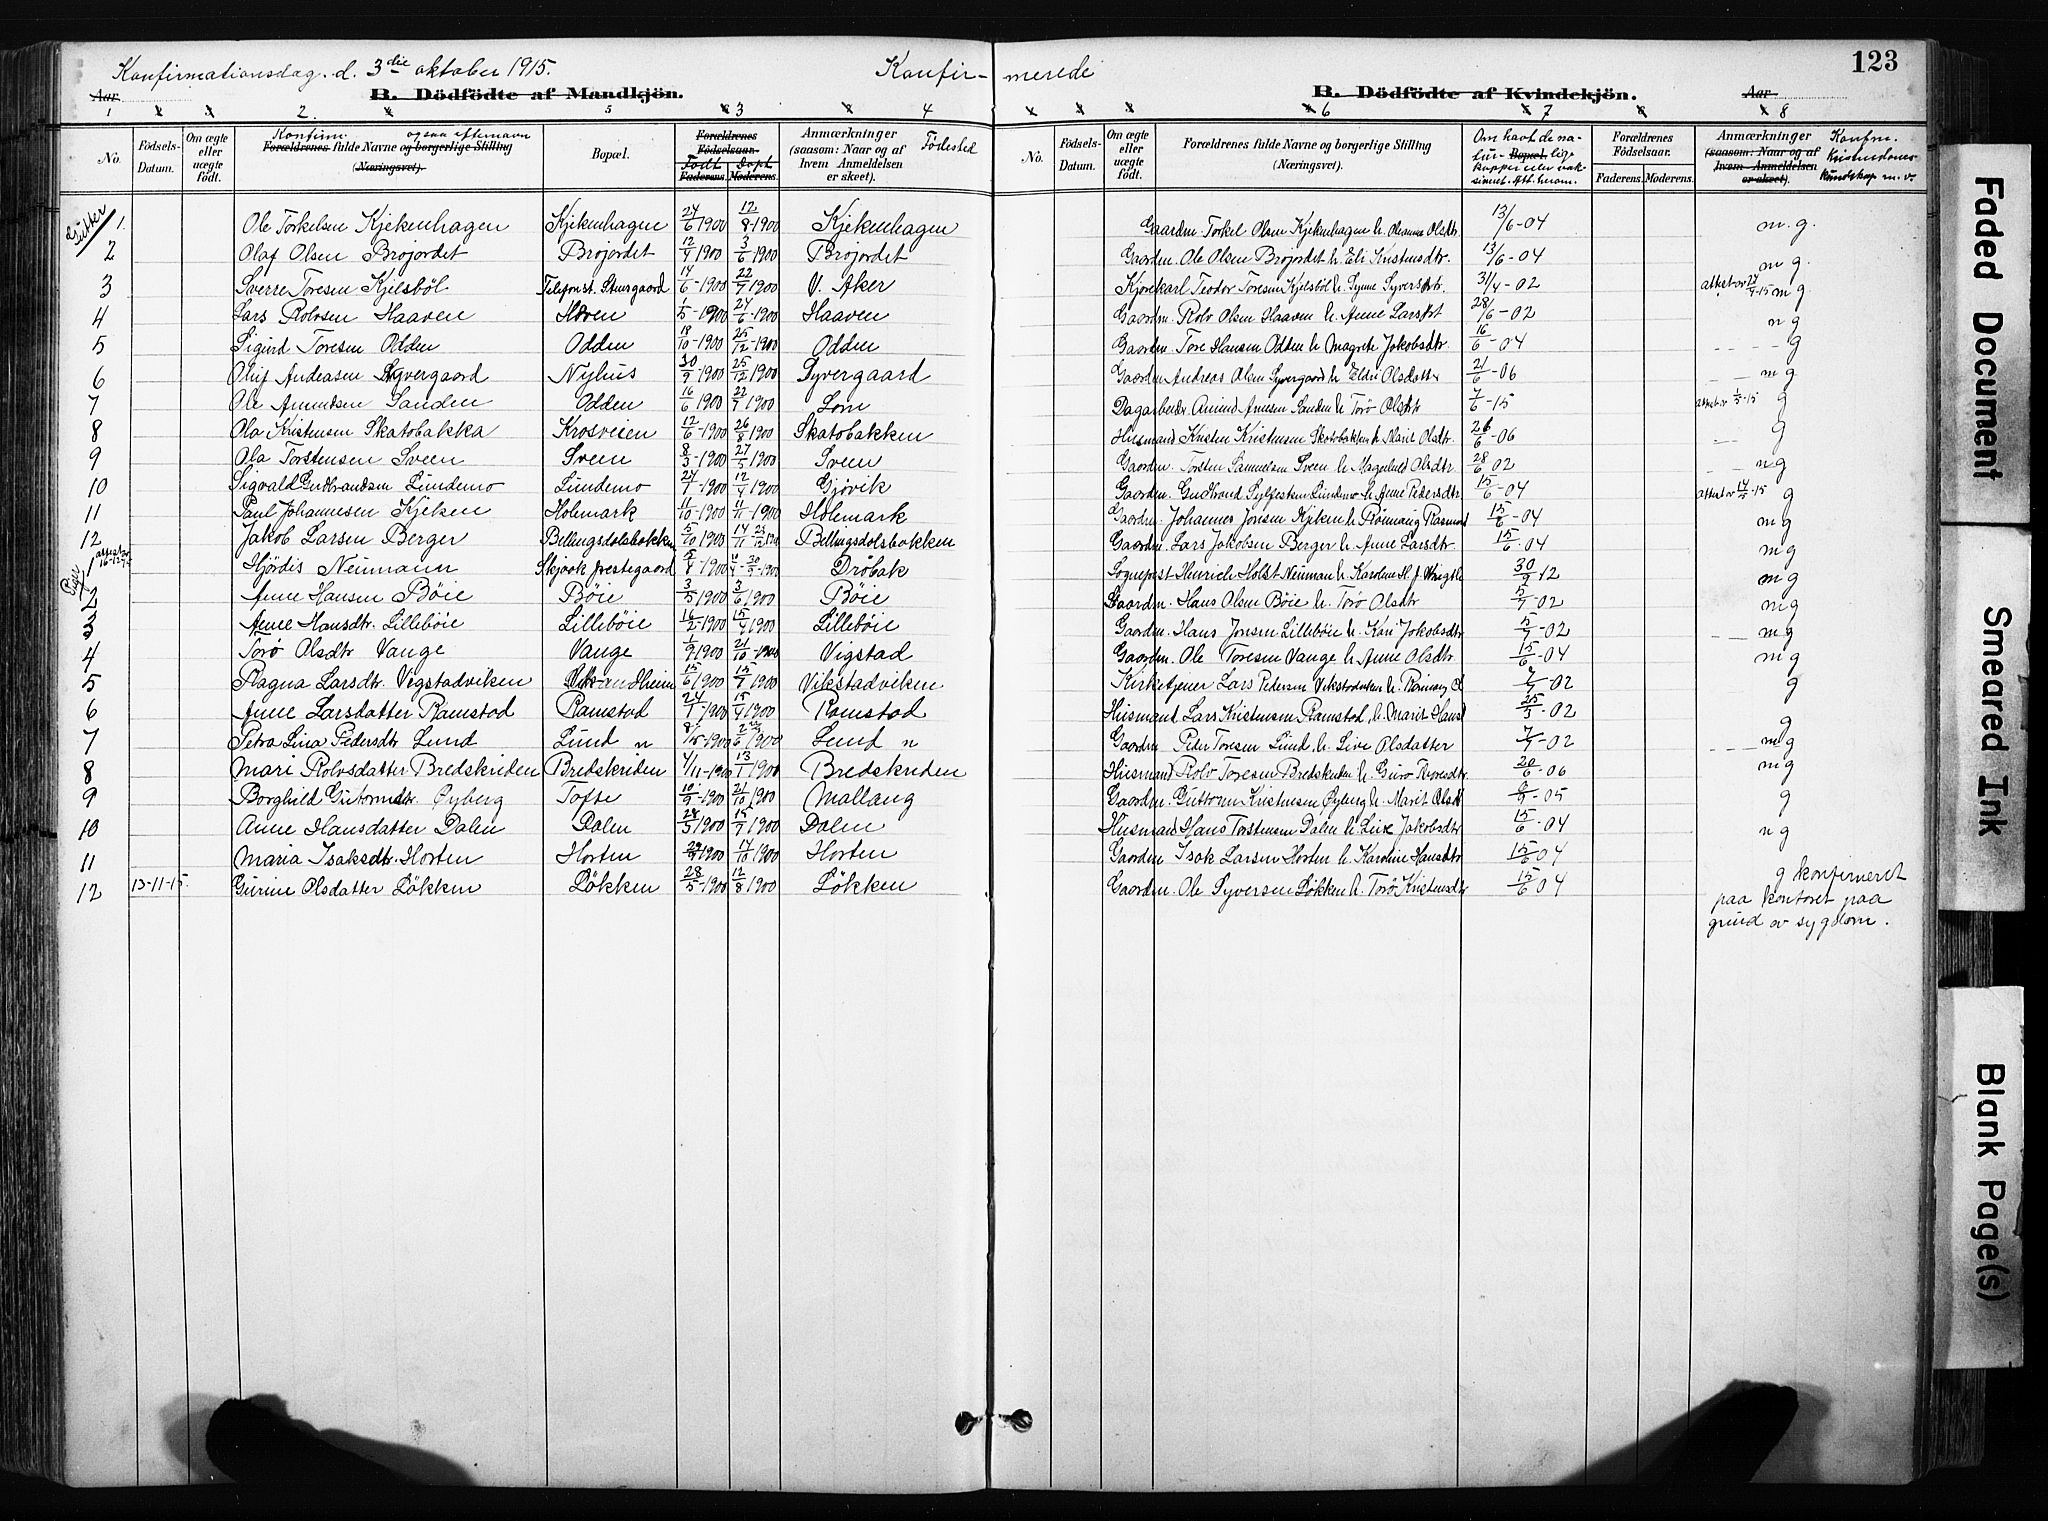 Konfirmationsdag. d. 3die oktober 1915.
Konfir- merede
123
Aar
B. Dödfödte af Mandkjön.
B. Dödfödte af Kvindekjön.
Aar
1 2. 5 3 4 6 7 8
No. Födsels-Datum. Om ægte eller uægte födt. Konfirm. ogsaa efternavn Forældrenes fulde Navne og borgerlige Stilling (Næringsvei). Bopæl. Forældrenes Födselsaar. Født Faderens. Døpt Moderens. Anmærkninger (saasom: Naar og af hvem Anmeldelsen er skeet). Födested
No. Födsels-Datum. Om ægte eller uægte födt. Forældrenes fulde Navne og borgerlige Stilling (Næringsvei). Om havt de na- Bopæl. Forældrenes Födselsaar. Faderens. Moderens. Anmærkninger (saasom: Naar og af hvem Anmeldelsen er skeet). Konfirm. Kristendoms- kundskap m. v.
Gutter 1. Ole Torkelsen Kjekenhagen Kjekenhagen 24/6 1900 12/8 1900 Kjekenhagen Gaardm. Torkel Olsen Kjekenhagen h. Olsdtr. 13/6-04 m. g.
2 Olaf Olsen Brøjordet Brøjordet 12/4 1900 3/6 1900 Brøjordet Gaardm. Ole Olsen Brøjordet h. Eli Kristensdtr. 13/6-04 m g.
3 Sverre Toresen Kjelsböl Telefonst. Stensgaard 14/6-1900 22/7 1900 V. Aker Kjørekarl Teodor Toresen Kjelsböl h. Synne Syversdtr. 31/4-02 m g
4 Lars Rolvsen Haaven Haven 1/5-1900 24/6-1900 Haaven Gaardm. Rolv Olsen Haaven h. Anne Larsdt 28/6-02 n g
5 Sigurd Toresen Odden Odden 18/10-1900 25/12-1900 Odden Gaardm. Tore Hansen Odden h. Magrete Jakobsdtr. 16/6-04 g
6 Oluf Andeasen Syvergaard Nyhus 30/9 1900 25/12 1900 Syvergaard Gaardm Andreas Olsen Syvergaard h. Eldri Olsdatter 21/6-06 m g
7 Ole Amundsen Sanden Odden 16/6 1900 22/7 1900 Lom Dagarbeider Amund Amesen Sanden h. Torø Olsdtr 7/6-15 g
8 Ola Kristensen Skatobakka Krosveien 12/6-1900 26/8 1900 Skatobakken Husmand Kristen Kristensen Skatobakken h. Marit Olsdtr. 26/6-06 g
9 Ola Torstensen Sveen Sveen 8/3-1900 27/5 1900 Sveen Gaardm. Torsten Samuelsen Sveen h. Magnhild Olsdtr 28/6 02 ng
10 Sigvald Gudbrandsen Lundemo Lundemo 24/1-1900 12/4 1900 Gjövik Gaardm. Gudbrand Sylfestsen Lundemo h. Anne Pedersdtr 15/6-04 g
11 Paul Johannesen Kjeken Holemark 11/10-1900 11/11-1900 Holemark Gaardm. Johannes Jonsen Kjeken h. Rönnaug Rasmusd 15/6-04 m g
12 Jakob Larsen Berger Bellingsdalsbakken 5/10 1900 14/11 Bellingsdalsbakken Gaardm. Lars Jakobsen Berger h. Anne Larsdtr 15/6-04 m g
Piger 1 Hjördis Neumann Skjaak prestegaard 5/8-1900 1900 Dröbak Sogneprest Heinrich Holst Neuman h. Karoline 30/9 12 m g
2 Anne Hansen Böie Böie 3/5 1900 3/6 1900 Böie Gaardm. Hans Olsen Böie h. Torø Olsdtr 5/7-02 m g
3 Anne Hansdtr. Lillebøie Lillebøie 16/2 1900 15/4 1900 Lillebøie Gaardm. Hans Jonsen Lillebøie h. Kari Jakobsdtr 5/7-02 m g
4 Torø Olsdtr Vange Vange 1/9 1900 21/10-1900 Vigstad Gaardm. Ole Toresen Vange h. Anne Olsdtr 15/6-04 m g
5 Ragna Larsdtr. Vegstadviken 15/6 1900 15/7 1900 Vikstadviken Kirketjener Lars Pedersen 7/7-02 g
6 Anne Larsdatter Ramstad Ramstad 24/1 1900 15/4 1900 Ramstad Husmand Lars Kristensen Ramstad, h. Marit Hansd 25/5-02 g
7 Petra Lina Pedersdtr Lund Lund n 8/5-1900 1900 Lund n Gaardm Peder Toresen Lund, h. Live Olsdatter 7/7-02 m g
8 Mari Rolvsdatter Bredskriden Bredskriden 4/11-1900 13/1 1900 Bredskriden Husmand Rolv Toresen Bredskriden h. Guro Toresdtr. 20/6-06 m g
9 Borghild Gutormdtr. Øyberg Tofte 10/9-1900 21/10 1900 Mallang Gaardm. Guttorm Kristensen Øyberg h. Marit Olsdt -05 g
10 Anne Hansdatter Dalen Dalen 28/5 1900 15/7 1900 Dalen Husmand Hans Torstensen Dalen h. Live Jakobsdtr 15/6-04 n g
11 Maria Isaksdtr. Horten Horten 1900 14/10 1900 Horten Gaardm Isak Larsen Horten h. Karoline Hansdtr 15/6 04
12 13-11-15. Gurine Olsdatter Lökken Lökken 28/5-1900 12/8 1900 Lökken Gaardm. Ole Syversen Lökken h. Torø Kristensdtr 15/6 04 g konfirmeret
paa kontoret paa
grund av sygdom.
Faded Document
Smeared Ink
Blank Page(s)